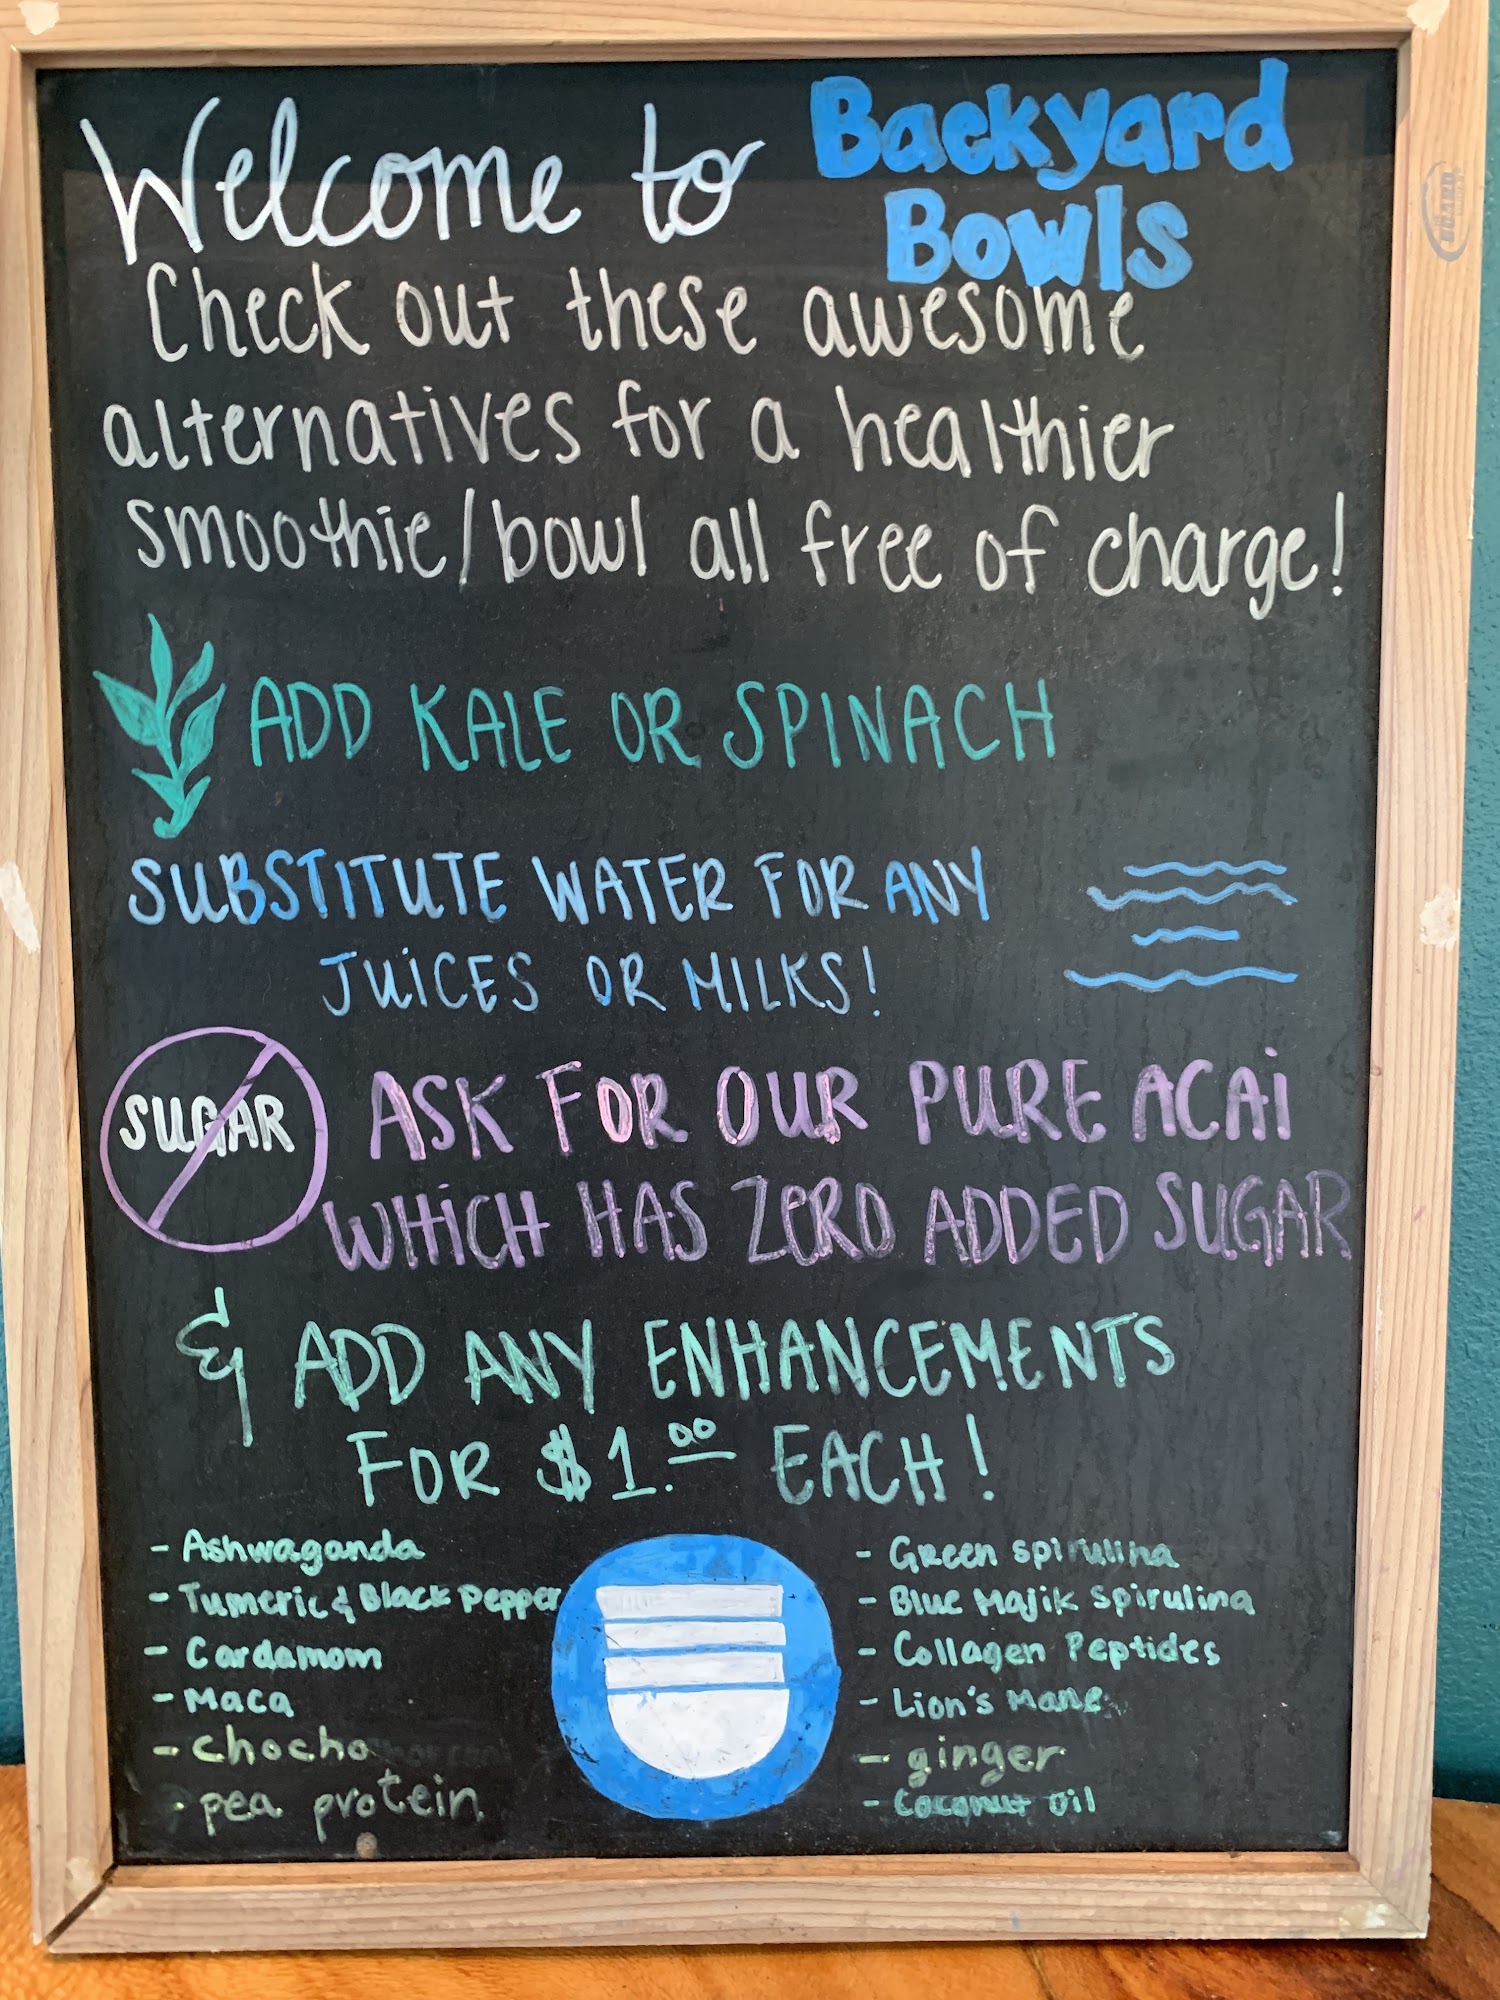 Welcome to Backyard Bowls
Check out these awesome
alternatives for a healthier
smoothie/bowl all free of charge!
ADD KALE OR SPINACH
SUBSTITUTE WATER FOR ANY
JUICES OR MILKS!
SUGAR
ASK FOR OUR PURE ACAI
WHICH HAS ZERO ADDED SUGAR
& ADD ANY ENHANCEMENTS
FOR $1.00 EACH!
- Ashwaganda
- Tumeric & Black Pepper
- Cardamom
- Maca
- chocho
- pea protein
- Green Spirulina
- Blue Majik Spirulina
- Collagen Peptides
- Lion's Mane
- ginger
- Coconut Oil